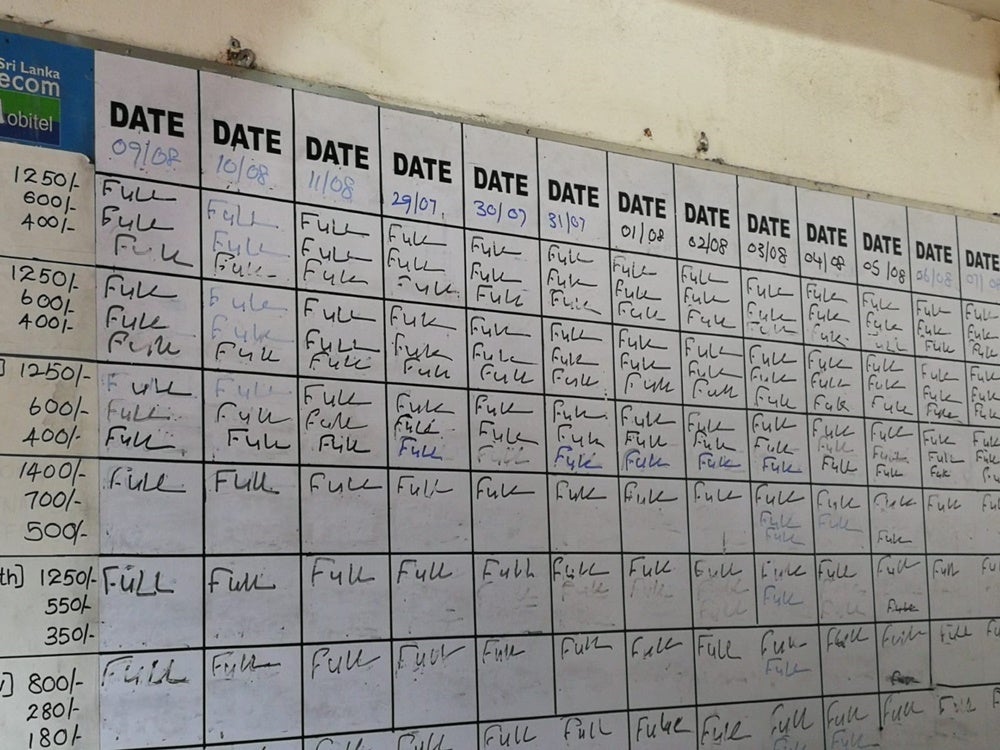 Sri Lanka
ecom
obitel
DATE DATE DATE DATE DATE DATE DATE DATE DATE DATE DATE DATE DATE
09/08 10/08 11/08 29/07 30/07 31/07 01/08 02/08 03/08 04/08 05/08 06/08 07/08
1250/- Full Full Full Full Full Full Full Full Full Full Full Full Full
600/- Full Full Full Full Full Full Full Full Full Full Full Full Full
400/- Full Full Full Full Full Full Full Full Full Full Full Full Full
1250/- Full Full Full Full Full Full Full Full Full Full Full Full Full
600/- Full Full Full Full Full Full Full Full Full Full Full Full Full
400/- Full Full Full Full Full Full Full Full Full Full Full Full Full
] 1250/- Full Full Full Full Full Full Full Full Full Full Full Full Full
600/- Full Full Full Full Full Full Full Full Full Full Full Full Full
400/- Full Full Full Full Full Full Full Full Full Full Full Full
1400/- Full Full Full Full Full Full Full Full Full Full Full Full Fu
700/- Full Full
500/- Full Full
th] 1250/- Full Full Full Full Full Full Full Full Full Full Full Full Fu
550/- Full
350/- Full
] 800/- Full Full Full Full Full Full Full Full Full Full Full Full
280/- Full
180/- Full Full Full Full Full Full Full Full Full Full